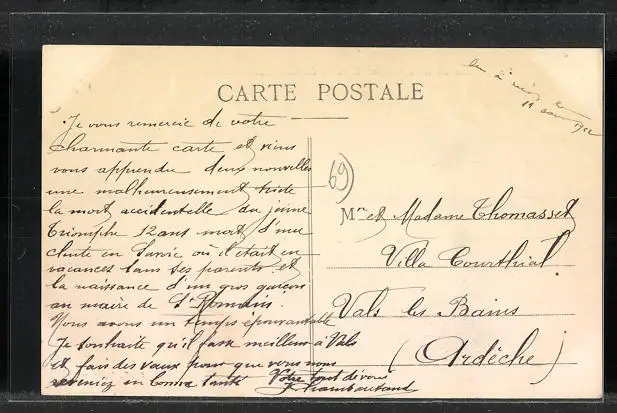 CARTE POSTALE
11 août 1912
Je vous remercie de votre
charmante carte et viens
vous apprendre deux nouvelles
une malheureusement triste
la mort accidentelle du jeune
Triomphe 12 ans mort d'une
chute en Savoie où il était en
vacances dans ses parents et
la naissance d'un gros garçon
au maire de St Romain.
Nous avons un temps épouvantable
Je souhaite qu'il fasse meilleur à Vals
et fais des vœux pour que vous nous
reveniez en bonne santé
Votre tout dévoué
69
Mr et Madame Thomasset
Villa Courthial
Vals les Bains
(Ardèche)